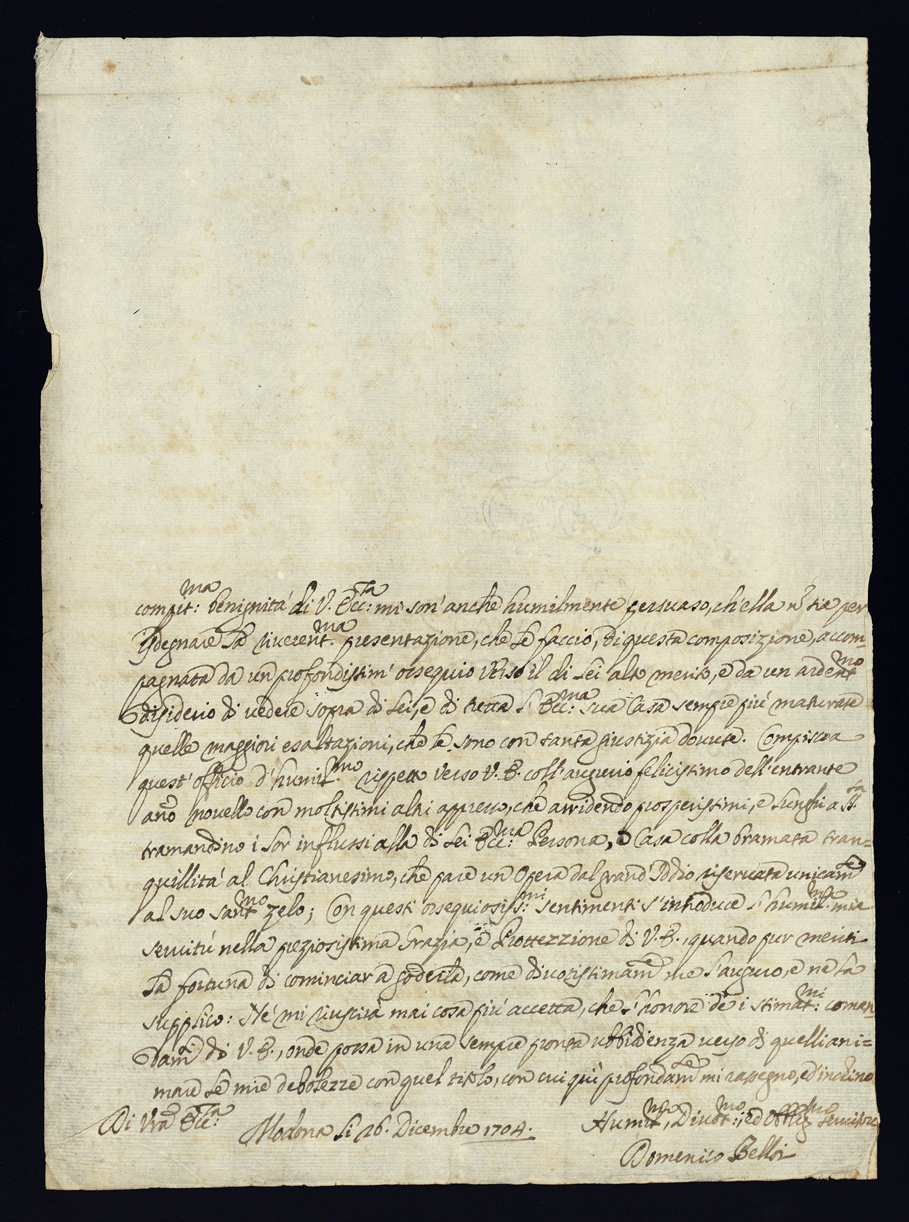 compit:ma benignità di V. Ecc:Ta mi son' anche humilmente persuaso, ch'ella nō sia per
isdegnare la riverent:ma presentazione, che le faccio, di questa composizione, accom-
pagnata da un profondissim' ossequio verso il di Lei alto merito, e da un ardentmo
disiderio di vedere sopra di Lei, e di tutta l'Ecc:ma sua Casa sempre più maturate
quelle maggiori esaltazioni, che le sono con tanta giustizia dovute. Compisca
quest' officio d'humilmo rispetto verso V. E. coll'augurio felicissimo dell'entrante
año novello con moltissimi altri appresso, che arridendo prosperissimi, e lunghi
tramandino i lor influssi alla di Lei Ecc:ma Persona, e Casa colla bramata tran=
quillità al Christianesimo, che pare un Opera dal grand Iddio riservata unicam̃
al suo santmo zelo; Con questi ossequiosiss:mi sentimenti s'introduce l'humil:ma mia
servitù nella preziosissima Grazia, e Prottezzione di V. E., quando pur meriti
la fortuna di cominciar a goderla, come divotissimam̃ me l'auguro, e ne la
supplico: Né mi riuscirà mai cosa più accetta, che l'honore de i stimat:mi coman=
dam̃ di V. E., onde possa in una sempre pronta ubbidienza verso di quelli ani=
mare le mie debolezze con quel titolo, con cui quì profondam̃ mi rassegno, ed inchino
Di Vrã Ecc:Ta
Modona li 26. Dicembre 1704.
Humilmo, Divot:mo, ed Obbligmo Servitore
Domenico Bellei